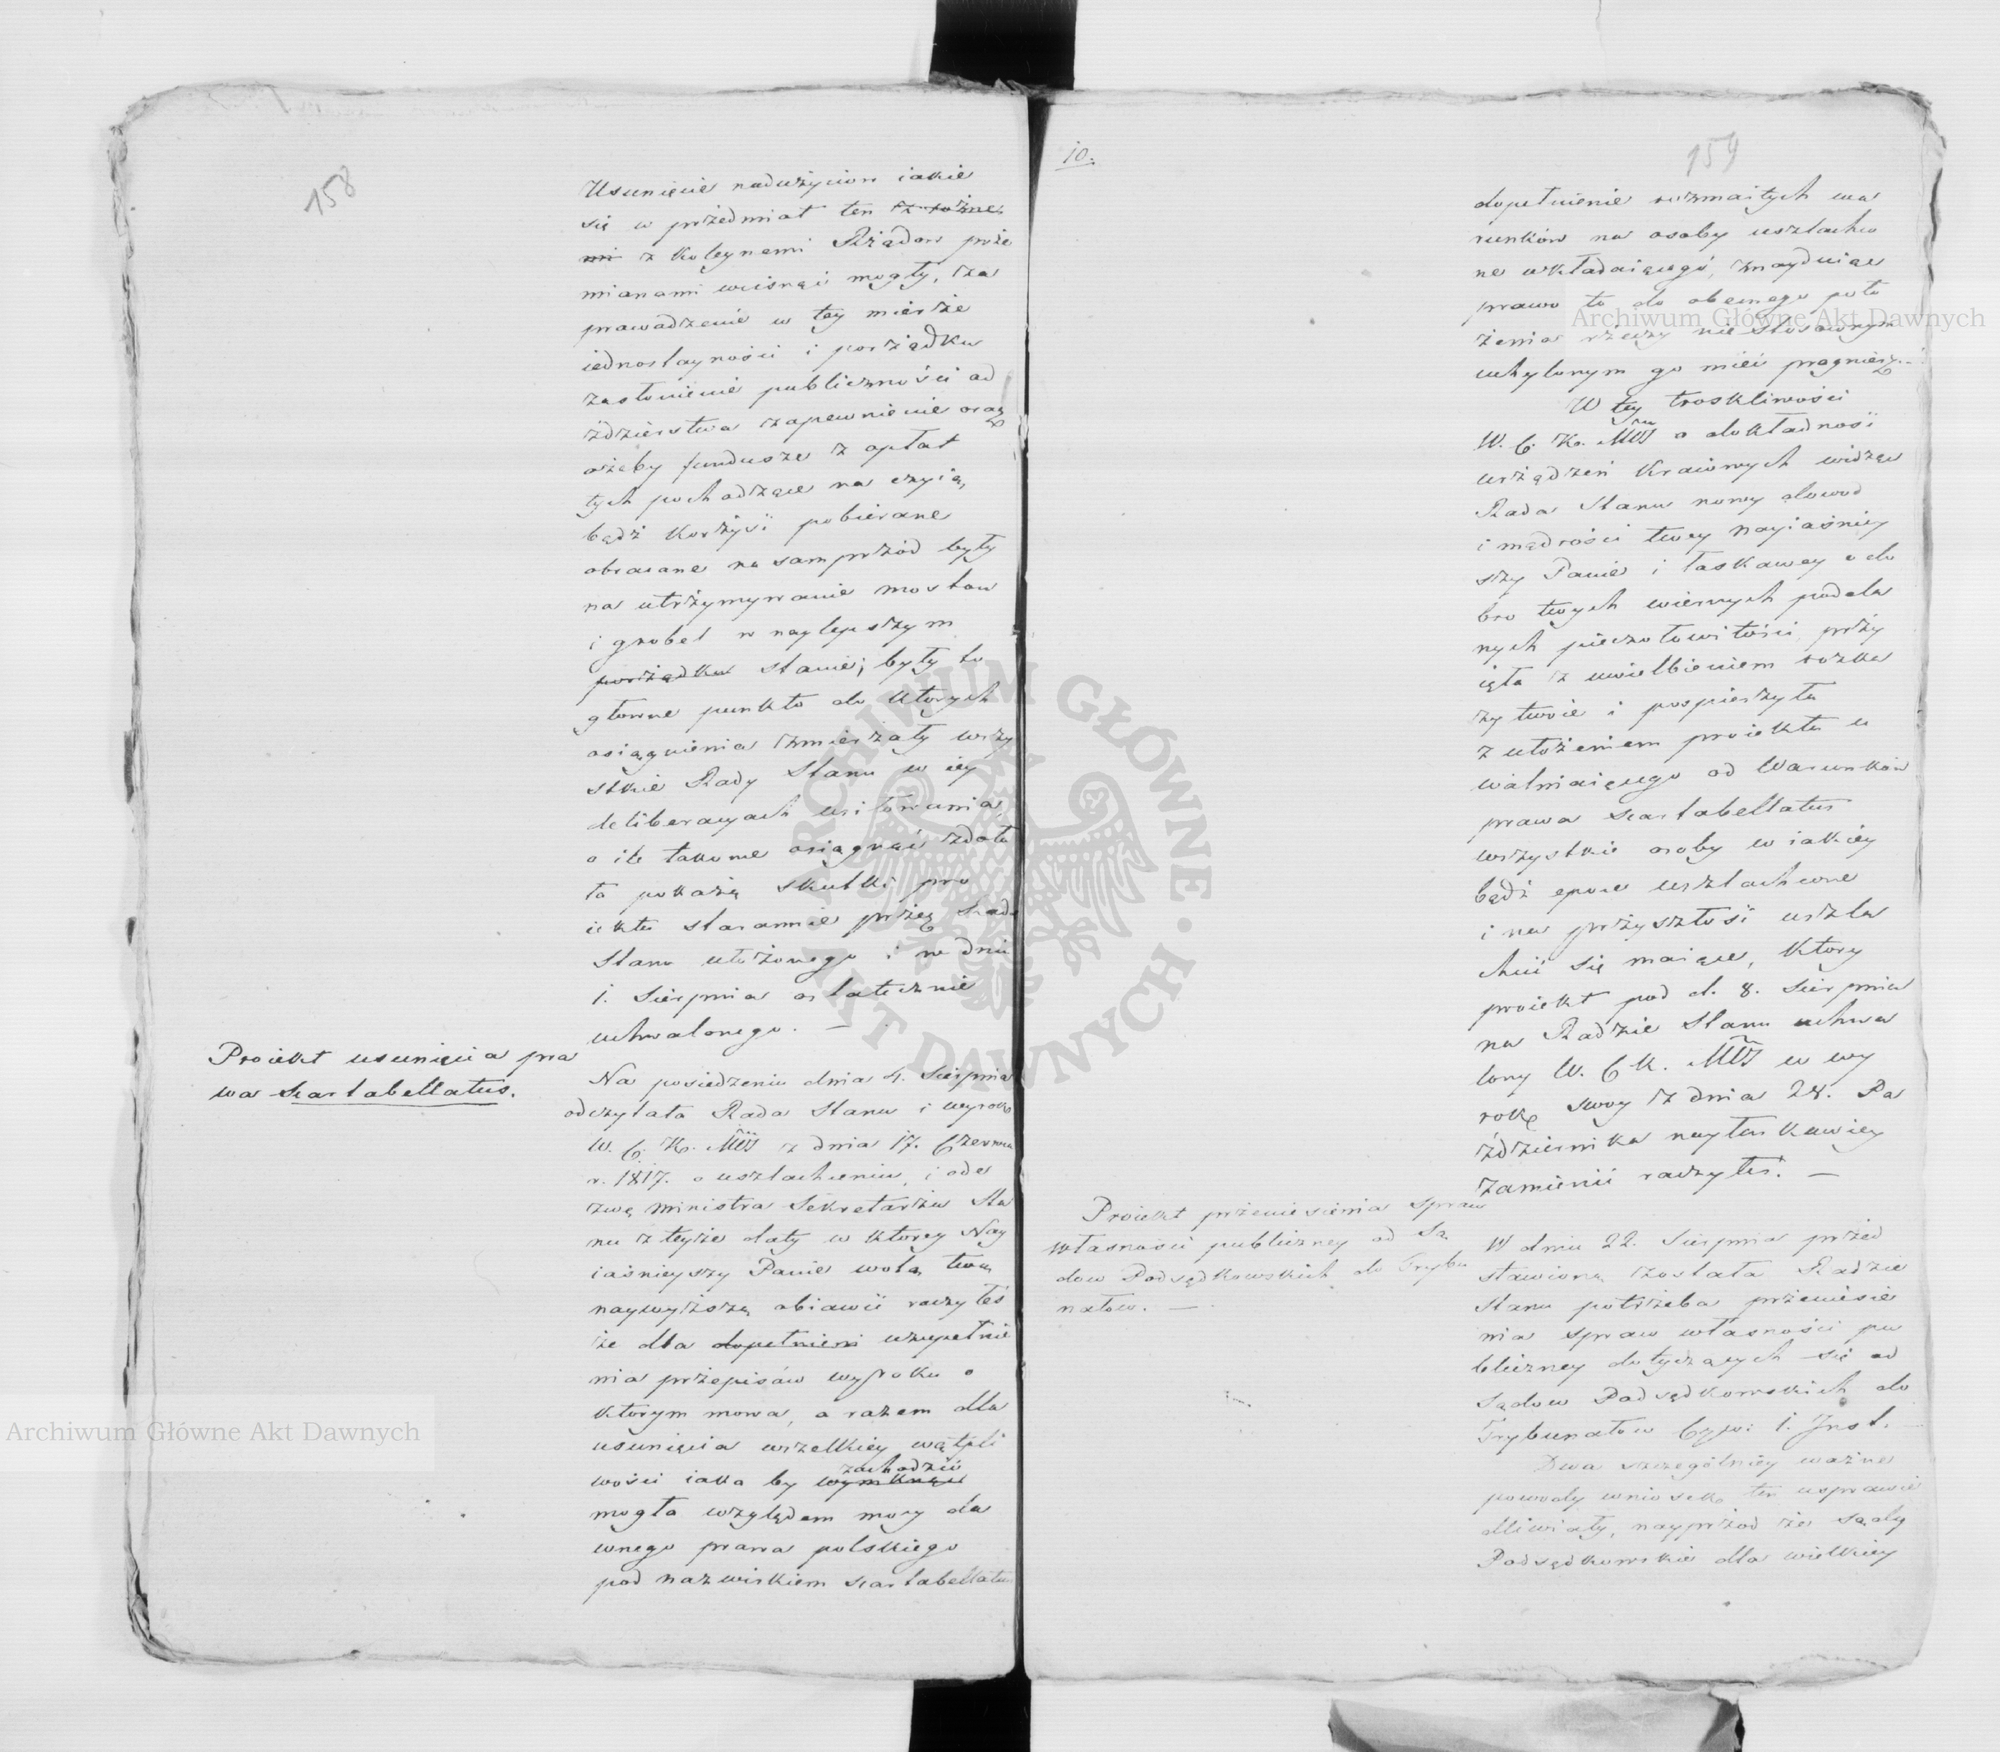 158
Usunięcie nadużyciow iakie
się w przedmiat ten z rożne
mi z koleynemi Rządow prze
mianami wcisnąć mogły, za
prowadzenie w tey mierze
iednostayności i porządku
zasłonienie publiczności od
ździerstwa zapewnienie oraz
ażeby fundusze z opłat
tych pochodzące na czyią
bądź korzyść pobierane
obracane na samprzód były
na utrzymywanie mostow
i grobel w naylepszym
porządku stanie; były to
głowne punkta do ktorych
osiągnienia zmierzały wszy
stkie Rady Stanu w iey
deliberacyach usiłowania,
o ile takowe osiągnąć zdoła
to pokażą skutki pro
iektu starannie przez Radę
Stanu ułożonego i w dniu
1. Sierpnia ostatecznie
uchwalonego. —
Proiekt usunięcia pra
wa scartabellatus.
Na posiedzeniu dnia 4. Sierpnia
odczytała Rada Stanu i wyrok
W. C. K. Mći z dnia 17. Czerwca
r. 1817. o uszlachceniu, i ode
zwę Ministra Sekretarza Sta
nu z teyże daty w ktorey Nay
iaśnieyszy Panie wolą twą
naywyższą obiawić raczyłeś
że dla dopełnieni uzupełnie
nia przepisów wyroku o
ktorym mowa, a razem dla
usunięcia wszelkiey wątpli
wości iaka by wymknąć zachodzić
mogła względem mocy da
wnego prawa polskiego
pod nazwiskiem scartabellatus
10.
159
dopełnienie rozmaitych wa
runków na osoby uszlachco
ne wkładaiącego, znayduiąc
prawo to do obecnego poło
żenia rzeczy nie stosownym
uchylonym go mieć pragniesz. —
W tey troskliwości
W. C. K. Mći o dokładność
urządzeń Kraiowych widząc
Rada Stanu nowy dowod
i mądrości twey Nayiaśniey
szy Panie i łaskawey o do
bro twych wiernych podda
nych pieczołowitości, przy
ięła z uwielbieniem rozka
zy twoie i pospieszyła
z ułożeniem proiektu u
walniaiącego od Warunków
prawa scartabellatus
wszystkie osoby w iakiey
bądź epoce uszlachcone
i na przyszłość uszla
chcić się maiące, ktory
proiekt pod d. 8. Sierpnia
na Radzie Stanu uchwa
lony W. C K. Mć w wy
rok swoy z dnia 28. Pa
ździernika nayłaskawiey
zamienić raczyłeś. —
Proiekt przeniesienia spraw
własności publiczney od Są
dow Podsędkowskich do Trybu
nałow. —
W dniu 22. Sierpnia przed
stawioną została Radzie
Stanu potrzeba przeniesie
nia spraw własności pu
bliczney dotyczących się od
Sądow Podsędkowskich do
Trybunałow Cyw: 1. Inst. —
Dwa szczególniey ważne
powody wniosek ten usprawie
dliwiały, nayprzod że Sądy
Podsędkowskie dla wielkiey
Archiwum Główne Akt Dawnych
Archiwum Główne Akt Dawnych
ARCHIWUM GŁÓWNE · AKT DAWNYCH ·